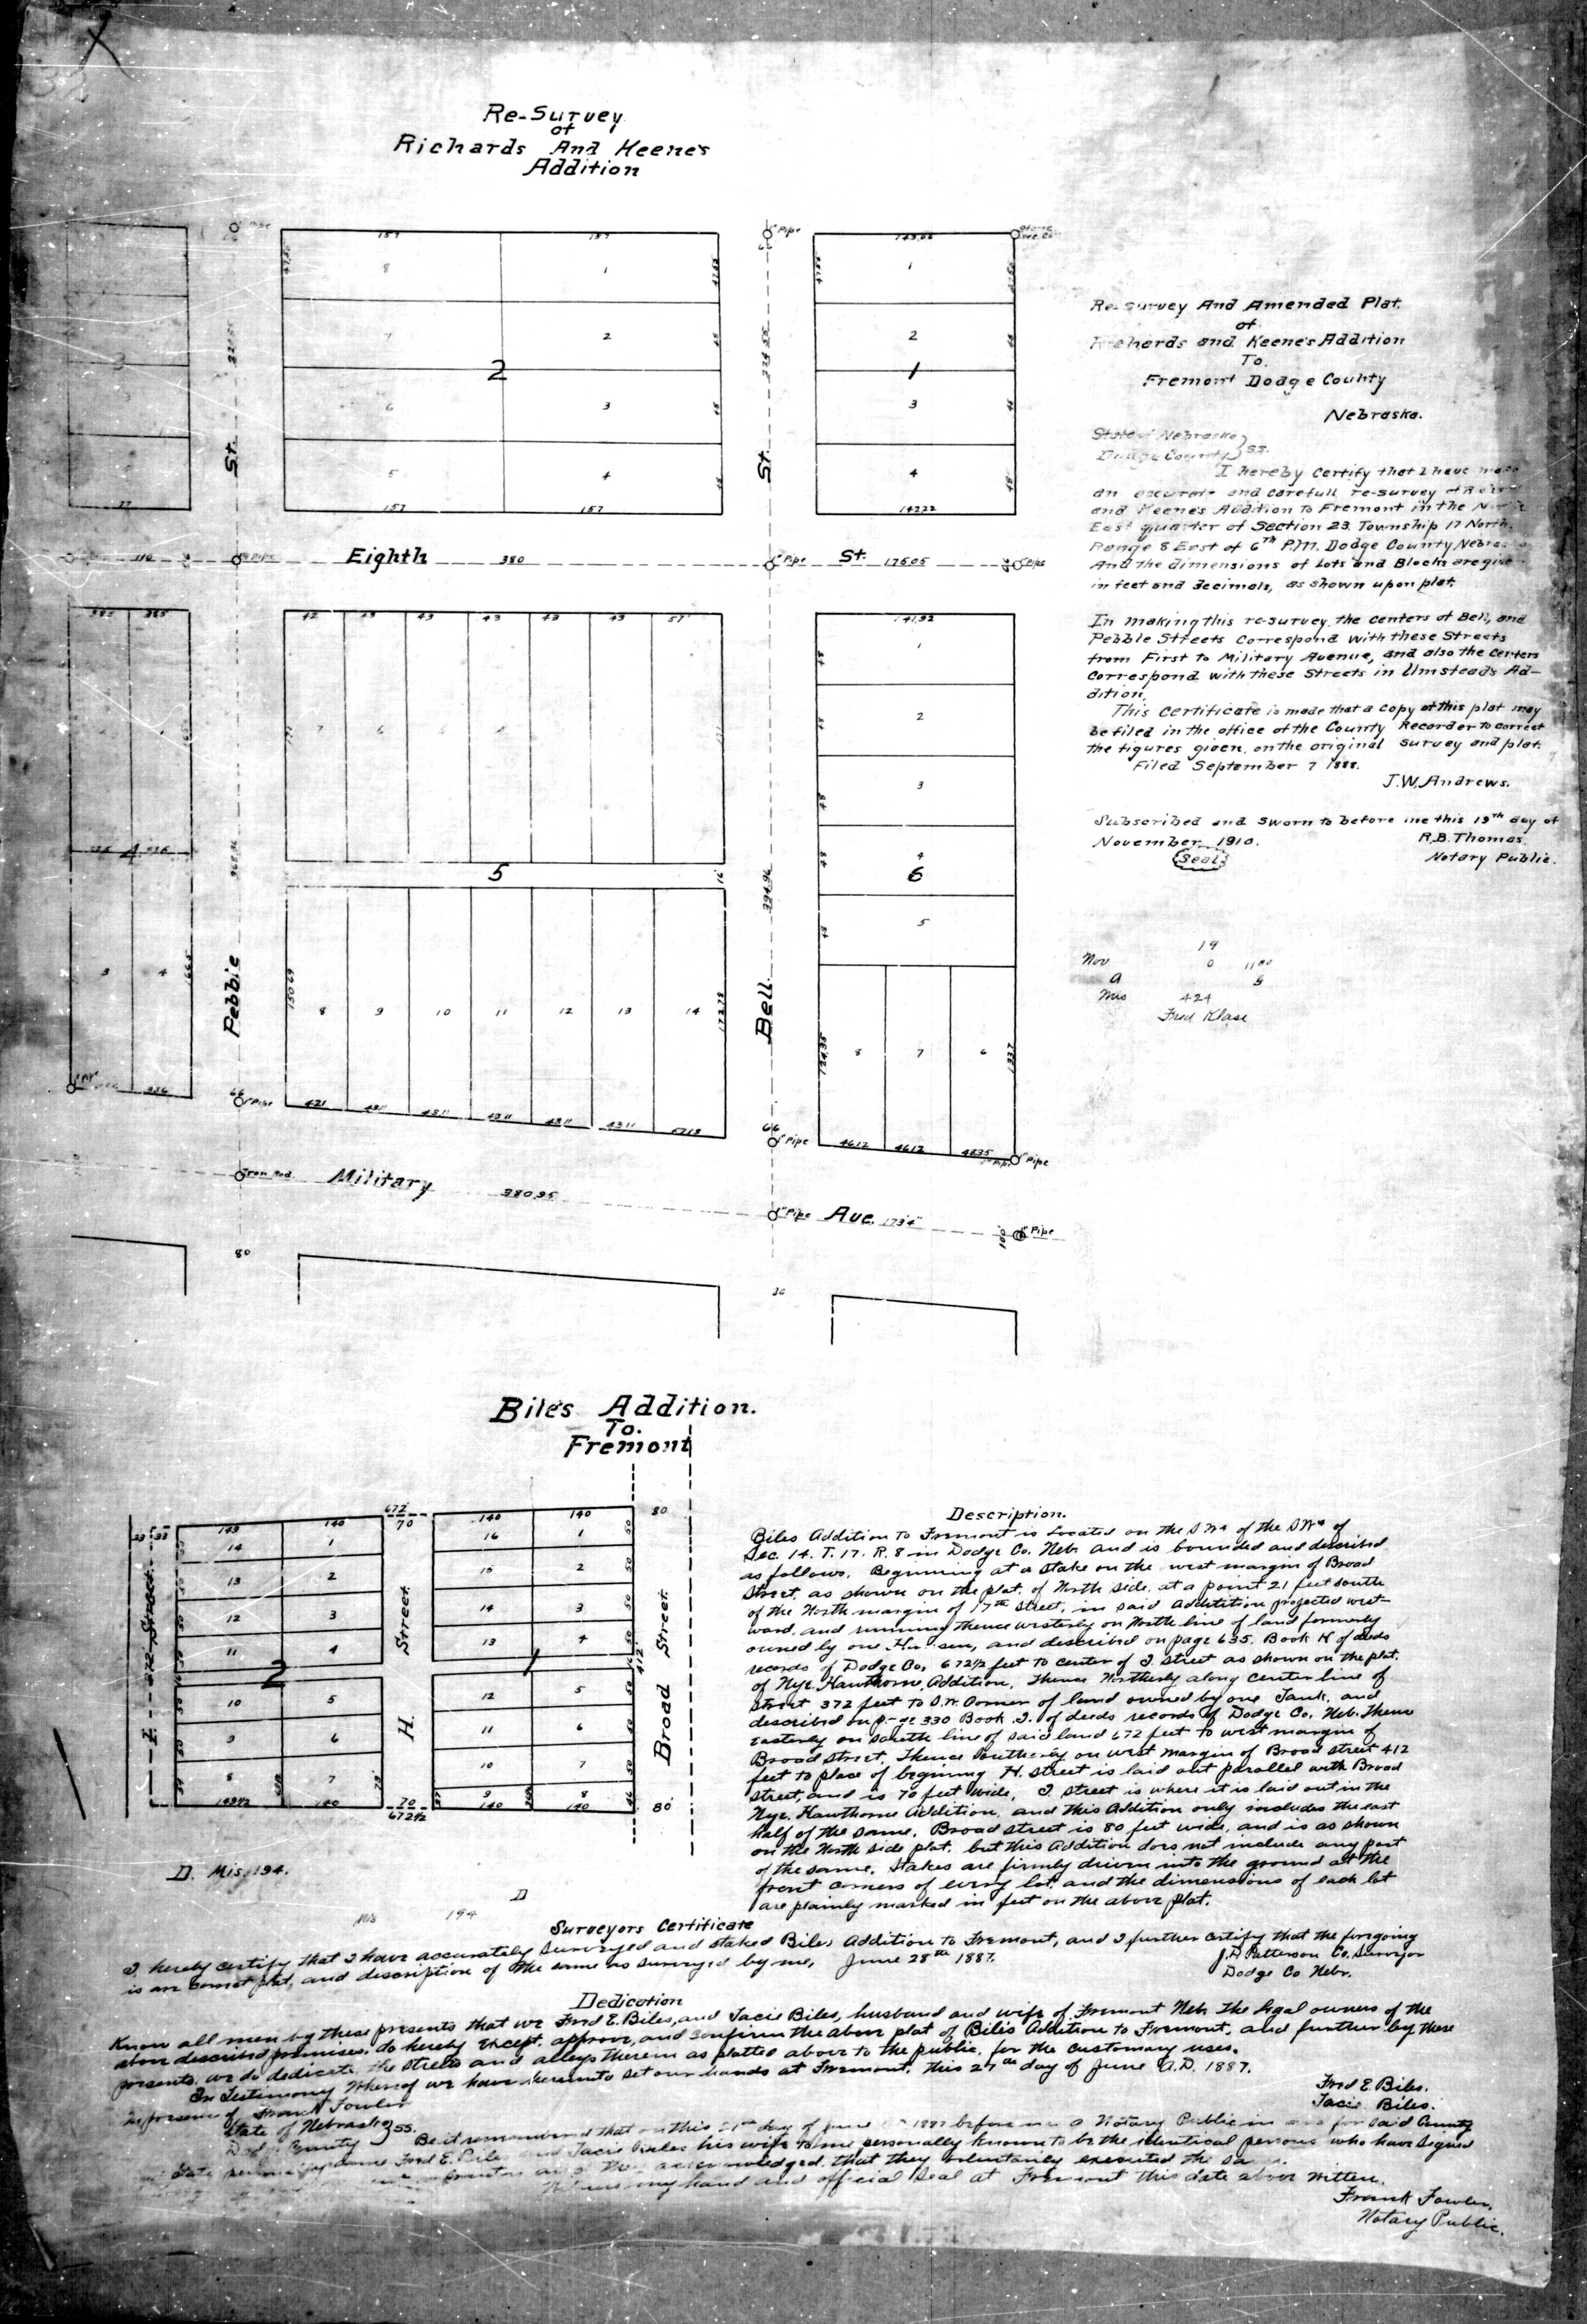 X
Re-Survey
of
Richards And Keene's
Addition
Pipe
1" Pipe
Stone
157
157
143.06
8
1
1
7
2
2
3
2
1
6
3
3
5
4
4
157
157
142.22
48
48
48
48
48
48
St.
St.
110
Pipe
Eighth
380
1" Pipe
St.
176.05
Pipe
38.5
38.5
42
43
43
43
43
43
57
141.92
7
6
1
2
3
4
5
48
48
48
48
48
4
5
16
6
394.96
3
4
166.5
Pebble
150.69
8
9
10
11
12
13
14
172.78
Bell
124.35
8
7
6
133.7
42.1
43.11
43.11
43.11
43.11
43.11
57.13
46.12
46.12
48.35
66
1" Pipe
66
1" Pipe
1" Pipe
1" Pipe
Iron Rod
Military
380.95
1" Pipe
Ave.
173.4
1" Pipe
100
80
Re-survey And Amended Plat.
of
Richards and Keene's Addition
To.
Fremont Dodge County
Nebraska.
State of Nebraska }
Dodge County } SS.
I hereby certify that I have made
an accurate and carefull re-survey of
and Keene's Addition to Fremont in the North
East quarter of Section 23. Township 17 North.
Range 8 East of 6th P.M. Dodge County Nebraska
And the dimensions of Lots and Blocks are
in feet and decimals, as shown upon plat.
In making this re-survey, the centers of Bell, and
Pebble Streets Correspond with these Streets
from First to Military Avenue, and also the Centers
Correspond with these Streets in Umstead's Ad-
dition.
This Certificate is made that a copy of this plat may
be filed in the office of the County Recorder to correct
the figures given on the original survey and plat.
Filed September 7 1888.
J.W. Andrews.
Subscribed and sworn to before me this 19th day of
November, 1910.
R.B. Thomas
(Seal)
Notary Public.
19
Nov 0 11 00
a
Mis 424
Fred Klase
Biles Addition.
To.
Fremont
672
33
33
143
140
70
140
140
80
14
1
16
1
50
13
2
15
2
50
12
3
14
3
50
11
4
13
4
50
2
1
412
10
5
12
5
50
9
6
11
6
50
8
7
10
7
50
9
8
143½
140
70
140
140
80
672½
I Street
H. Street
Broad Street
D. Mis. 194.
Mis 194 D
Description.
Biles Addition to Fremont is Located on the S.W¼ of the S.W¼ of
Sec. 14. T. 17. R. 8 in Dodge Co. Neb. and is bounded and described
as follows. Beginning at a stake on the west margin of Broad
Street, as shown on the plat. of North side. at a point 21 feet south
of the North margin of 17th Street, in said Addition projected west-
ward, and running thence westerly on North line of land formerly
owned by one and described on page 635. Book K of deeds
records of Dodge Co, 672½ feet to center of I street as shown on the plat.
of Nye. Hawthorne Addition, Thence Northerly along center line of
street 372 feet to S.W. Corner of land owned by one and
described on page 330 Book I. of deeds records of Dodge Co. Neb. Thence
easterly on south line of said land 672 feet to west margin of
Broad Street. Thence Southerly on west margin of Broad street 412
feet to place of begining H. street is laid out parallel with Broad
street, and is 70 feet wide, I street is where it is laid out in the
Nye. Hawthorne Addition, and this Addition only includes the east
half of the same, Broad street is 80 feet wide, and is as shown
on the North side plat. but this Addition does not include any part
of the same. Stakes are firmly driven into the ground at the
front corners of every lot, and the dimensions of each lot
are plainly marked in feet on the above plat.
Surveyors Certificate
I hereby certify that I have accurately surveyed and staked Biles Addition to Fremont, and I further certify that the foregoing
is an correct plat, and description of the same as surveyed by me, June 28th 1887.
J.H. Patterson Co. Surveyor
Dodge Co Nebr.
Dedication
Know all men by these presents that we Fred E. Biles, and Tacie Biles, husband and wife of Fremont Neb. the legal owners of the
above described premises, do hereby except, approve, and confirm the above plat of Biles Addition to Fremont, and further by these
presents, we do dedicate the streets and alleys therein as platted above to the public, for the customary uses.
In Testimony Whereof we have hereunto set our hands at Fremont, this 27th day of June A.D. 1887.
In presence of Frank Fowler
Fred E. Biles.
Tacie Biles.
State of Nebraska } SS.
County
Be it remembered that on this day of June 1887 before me a Notary Public in and for said County
State personally came Fred E. Biles and Tacie Biles his wife to me personally known to be the identical persons who have signed
acknowledged. that they voluntarily executed the
my hand and official Seal at Fremont this date above written.
Frank Fowler.
Notary Public.